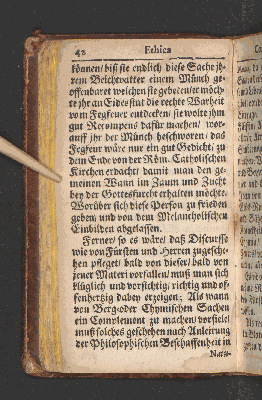 42 Ethica
können/ biß sie endlich diese Sache ih-
rem Beichtvatter einem Münch ge-
offenbaret welchen sie gebeten/ er möch-
te ihr an Eides stat die rechte Warheit
vom Fegfeuer entdecken/ sie wolte ihm
gut Recompens dafür machen/ wor-
auff ihr der Münch beschworen/ das
Fegfeur wäre nur ein gut Gedicht/ zu
dem Ende von der Röm. Catholischen
Kirchen erdacht/ damit man den ge-
meinen Mann im Zaum und Zucht
bey der Gottesfurcht erhalten möchte/
Worüber sich diese Person zu frieden
geben/ und von dem Melancholischen
Einbilden abgelassen.
Ferner/ so es wäre/ daß Discursse
wie von Fürsten und Herren zugesche-
hen pfleget/ bald von dieser/ bald von
jener Materi vorfallen/ muß man sich
klüglich und vorsichtig/ richtig und of-
fenhertzig dabey erzeigen; Als wann
von Berg-oder Chymischen Sachen
ein Complement zu machen/ vorfiel/
muß solches geschehen nach Anleitung
der Philosophischen Beschaffenheit in
Natu-